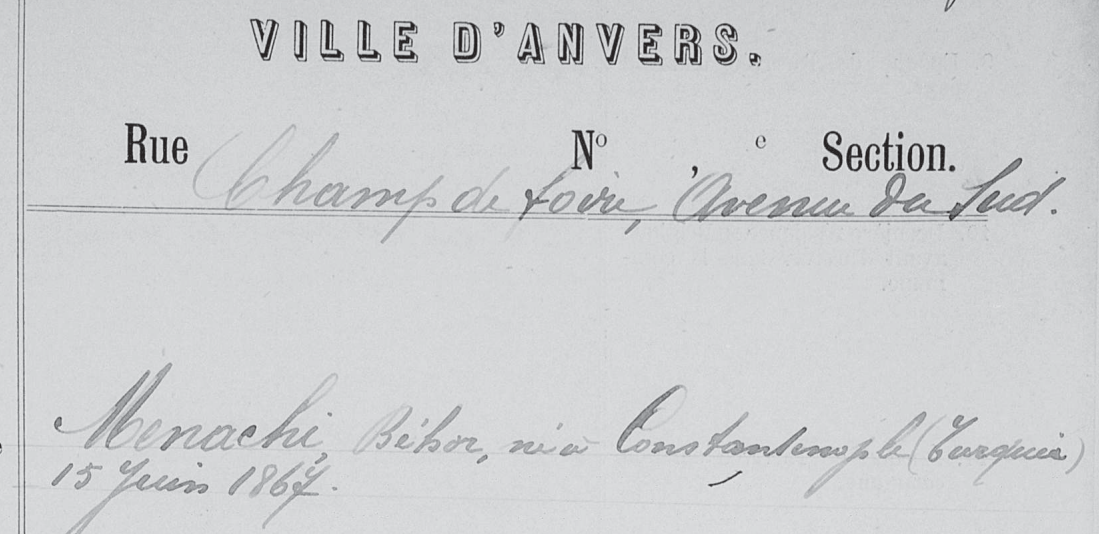 VILLE D'ANVERS.
Rue Nº , e Section.
Champ de foire, Avenue du Sud.
Menachi, Béhor, né à Constantinople (Turquie)
15 Juin 1867.